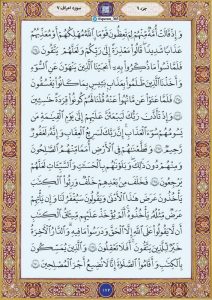 جزء ۹
سوره اعراف ۷
وَإِذْ قَالَتْ أُمَّةٌ مِّنْهُمْ لِمَ تَعِظُونَ قَوْمًا اللَّهُ مُهْلِكُهُمْ أَوْ مُعَذِّبُهُمْ
عَذَابًا شَدِيدًا قَالُوا مَعْذِرَةً إِلَىٰ رَبِّكُمْ وَلَعَلَّهُمْ يَتَّقُونَ
فَلَمَّا نَسُوا مَا ذُكِّرُوا بِهِ أَنجَيْنَا الَّذِينَ يَنْهَوْنَ عَنِ السُّوءِ
وَأَخَذْنَا الَّذِينَ ظَلَمُوا بِعَذَابٍ بَئِيسٍ بِمَا كَانُوا يَفْسُقُونَ
فَلَمَّا عَتَوْا عَن مَّا نُهُوا عَنْهُ قُلْنَا لَهُمْ كُونُوا قِرَدَةً خَاسِئِينَ
وَإِذْ تَأَذَّنَ رَبُّكَ لَيَبْعَثَنَّ عَلَيْهِمْ إِلَىٰ يَوْمِ الْقِيَامَةِ مَن
يَسُومُهُمْ سُوءَ الْعَذَابِ إِنَّ رَبَّكَ لَسَرِيعُ الْعِقَابِ وَإِنَّهُ لَغَفُورٌ
رَّحِيمٌ وَقَطَّعْنَاهُمْ فِي الْأَرْضِ أُمَمًا مِّنْهُمُ الصَّالِحُونَ
وَمِنْهُمْ دُونَ ذَٰلِكَ وَبَلَوْنَاهُم بِالْحَسَنَاتِ وَالسَّيِّئَاتِ لَعَلَّهُمْ
يَرْجِعُونَ فَخَلَفَ مِن بَعْدِهِمْ خَلْفٌ وَرِثُوا الْكِتَابَ
يَأْخُذُونَ عَرَضَ هَٰذَا الْأَدْنَىٰ وَيَقُولُونَ سَيُغْفَرُ لَنَا وَإِن يَأْتِهِمْ
عَرَضٌ مِّثْلُهُ يَأْخُذُوهُ أَلَمْ يُؤْخَذْ عَلَيْهِم مِّيثَاقُ الْكِتَابِ
أَن لَّا يَقُولُوا عَلَى اللَّهِ إِلَّا الْحَقَّ وَدَرَسُوا مَا فِيهِ وَالدَّارُ الْآخِرَةُ
خَيْرٌ لِّلَّذِينَ يَتَّقُونَ أَفَلَا تَعْقِلُونَ وَالَّذِينَ يُمَسِّكُونَ
بِالْكِتَابِ وَأَقَامُوا الصَّلَاةَ إِنَّا لَا نُضِيعُ أَجْرَ الْمُصْلِحِينَ
۱۷۲